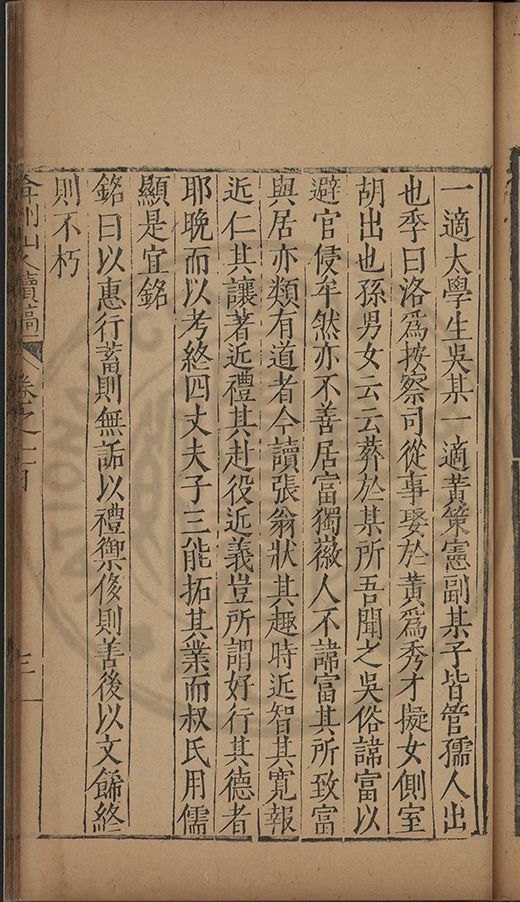 一適太學生吳某一適黃策憲副某子皆管孺人出
也季曰洛爲按察司從事娶於黃爲秀才擬女側室
胡出也孫男女云云葬於某所吾聞之吳俗諱富以
避官侵牟然亦不善居富獨徽人不諱富其所致富
與居亦類有道者今讀張翁狀其趣時近智其寬報
近仁其讓著近禮其赴役近義豈所謂好行其德者
耶晚而以考終四丈夫子三能拓其業而叔氏用儒
顯是宜銘
銘曰以惠行蓄則無詬以禮禦侈則善後以文飾終
則不朽
弇州山人續稿
卷之一百
三